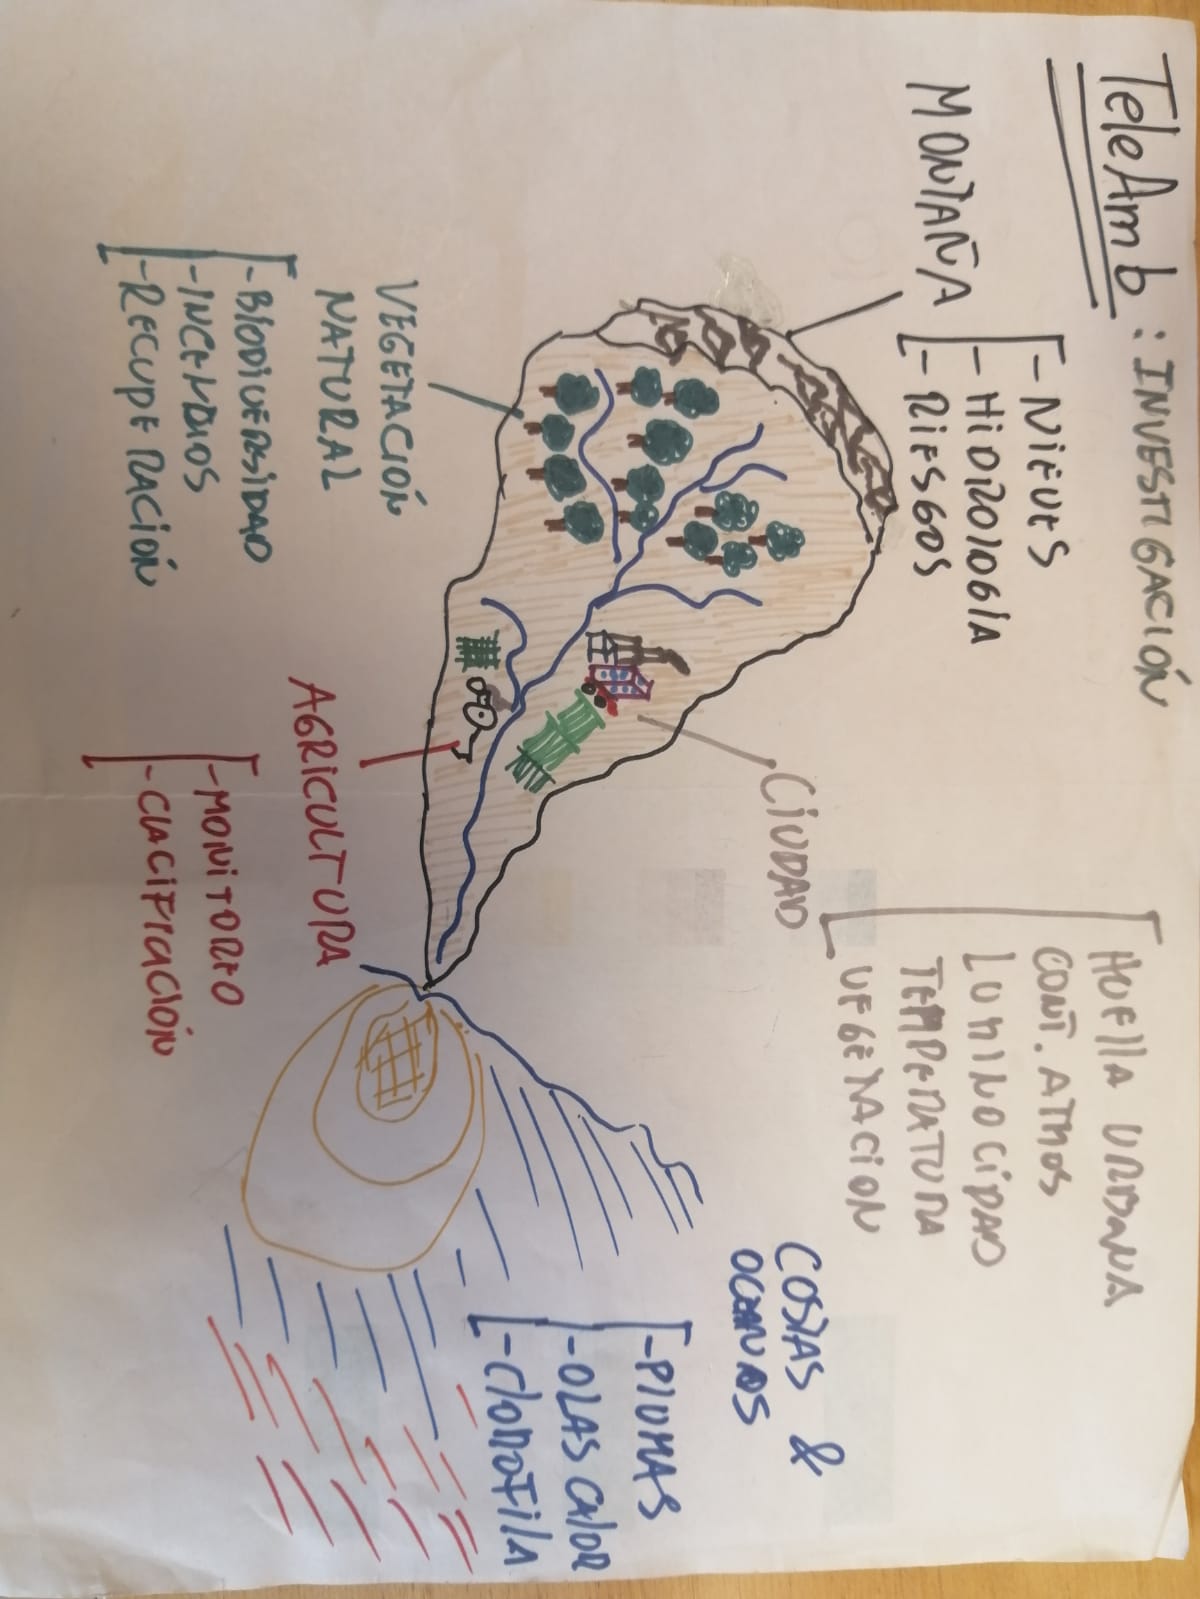 TeleAmb : INVESTIGACIÓN
MONTAÑA
- NIEVES
- HIDROlOGÍA
- RIESGOS
HUEllA URBANA
CONT. ATMOS
LUMINOCIDAD
TEMPERATURA
VEGETACION
CIUDAD
COSTAS &
OCEANOS
- PlUMAS
- OLAS CAlOR
- ClOROFIlA
VEGETACIÓN
NATURAL
- BIODIVERSIDAD
- INCENDIOS
- RECUPERACIÓN
AGRICULTURA
- MONITOREO
- ClACIFICACIÓN